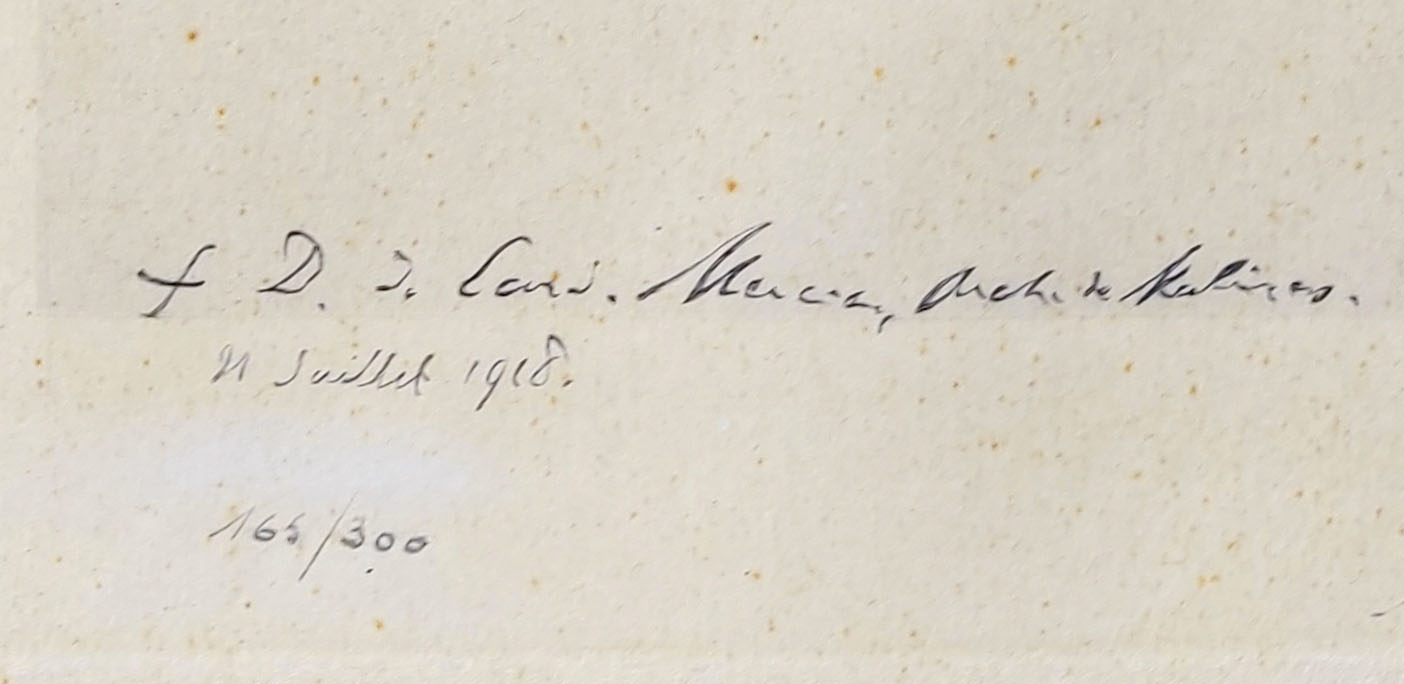 † D. J. Card. Mercier, Arch. de Malines.
21 Juillet 1918.
165/300